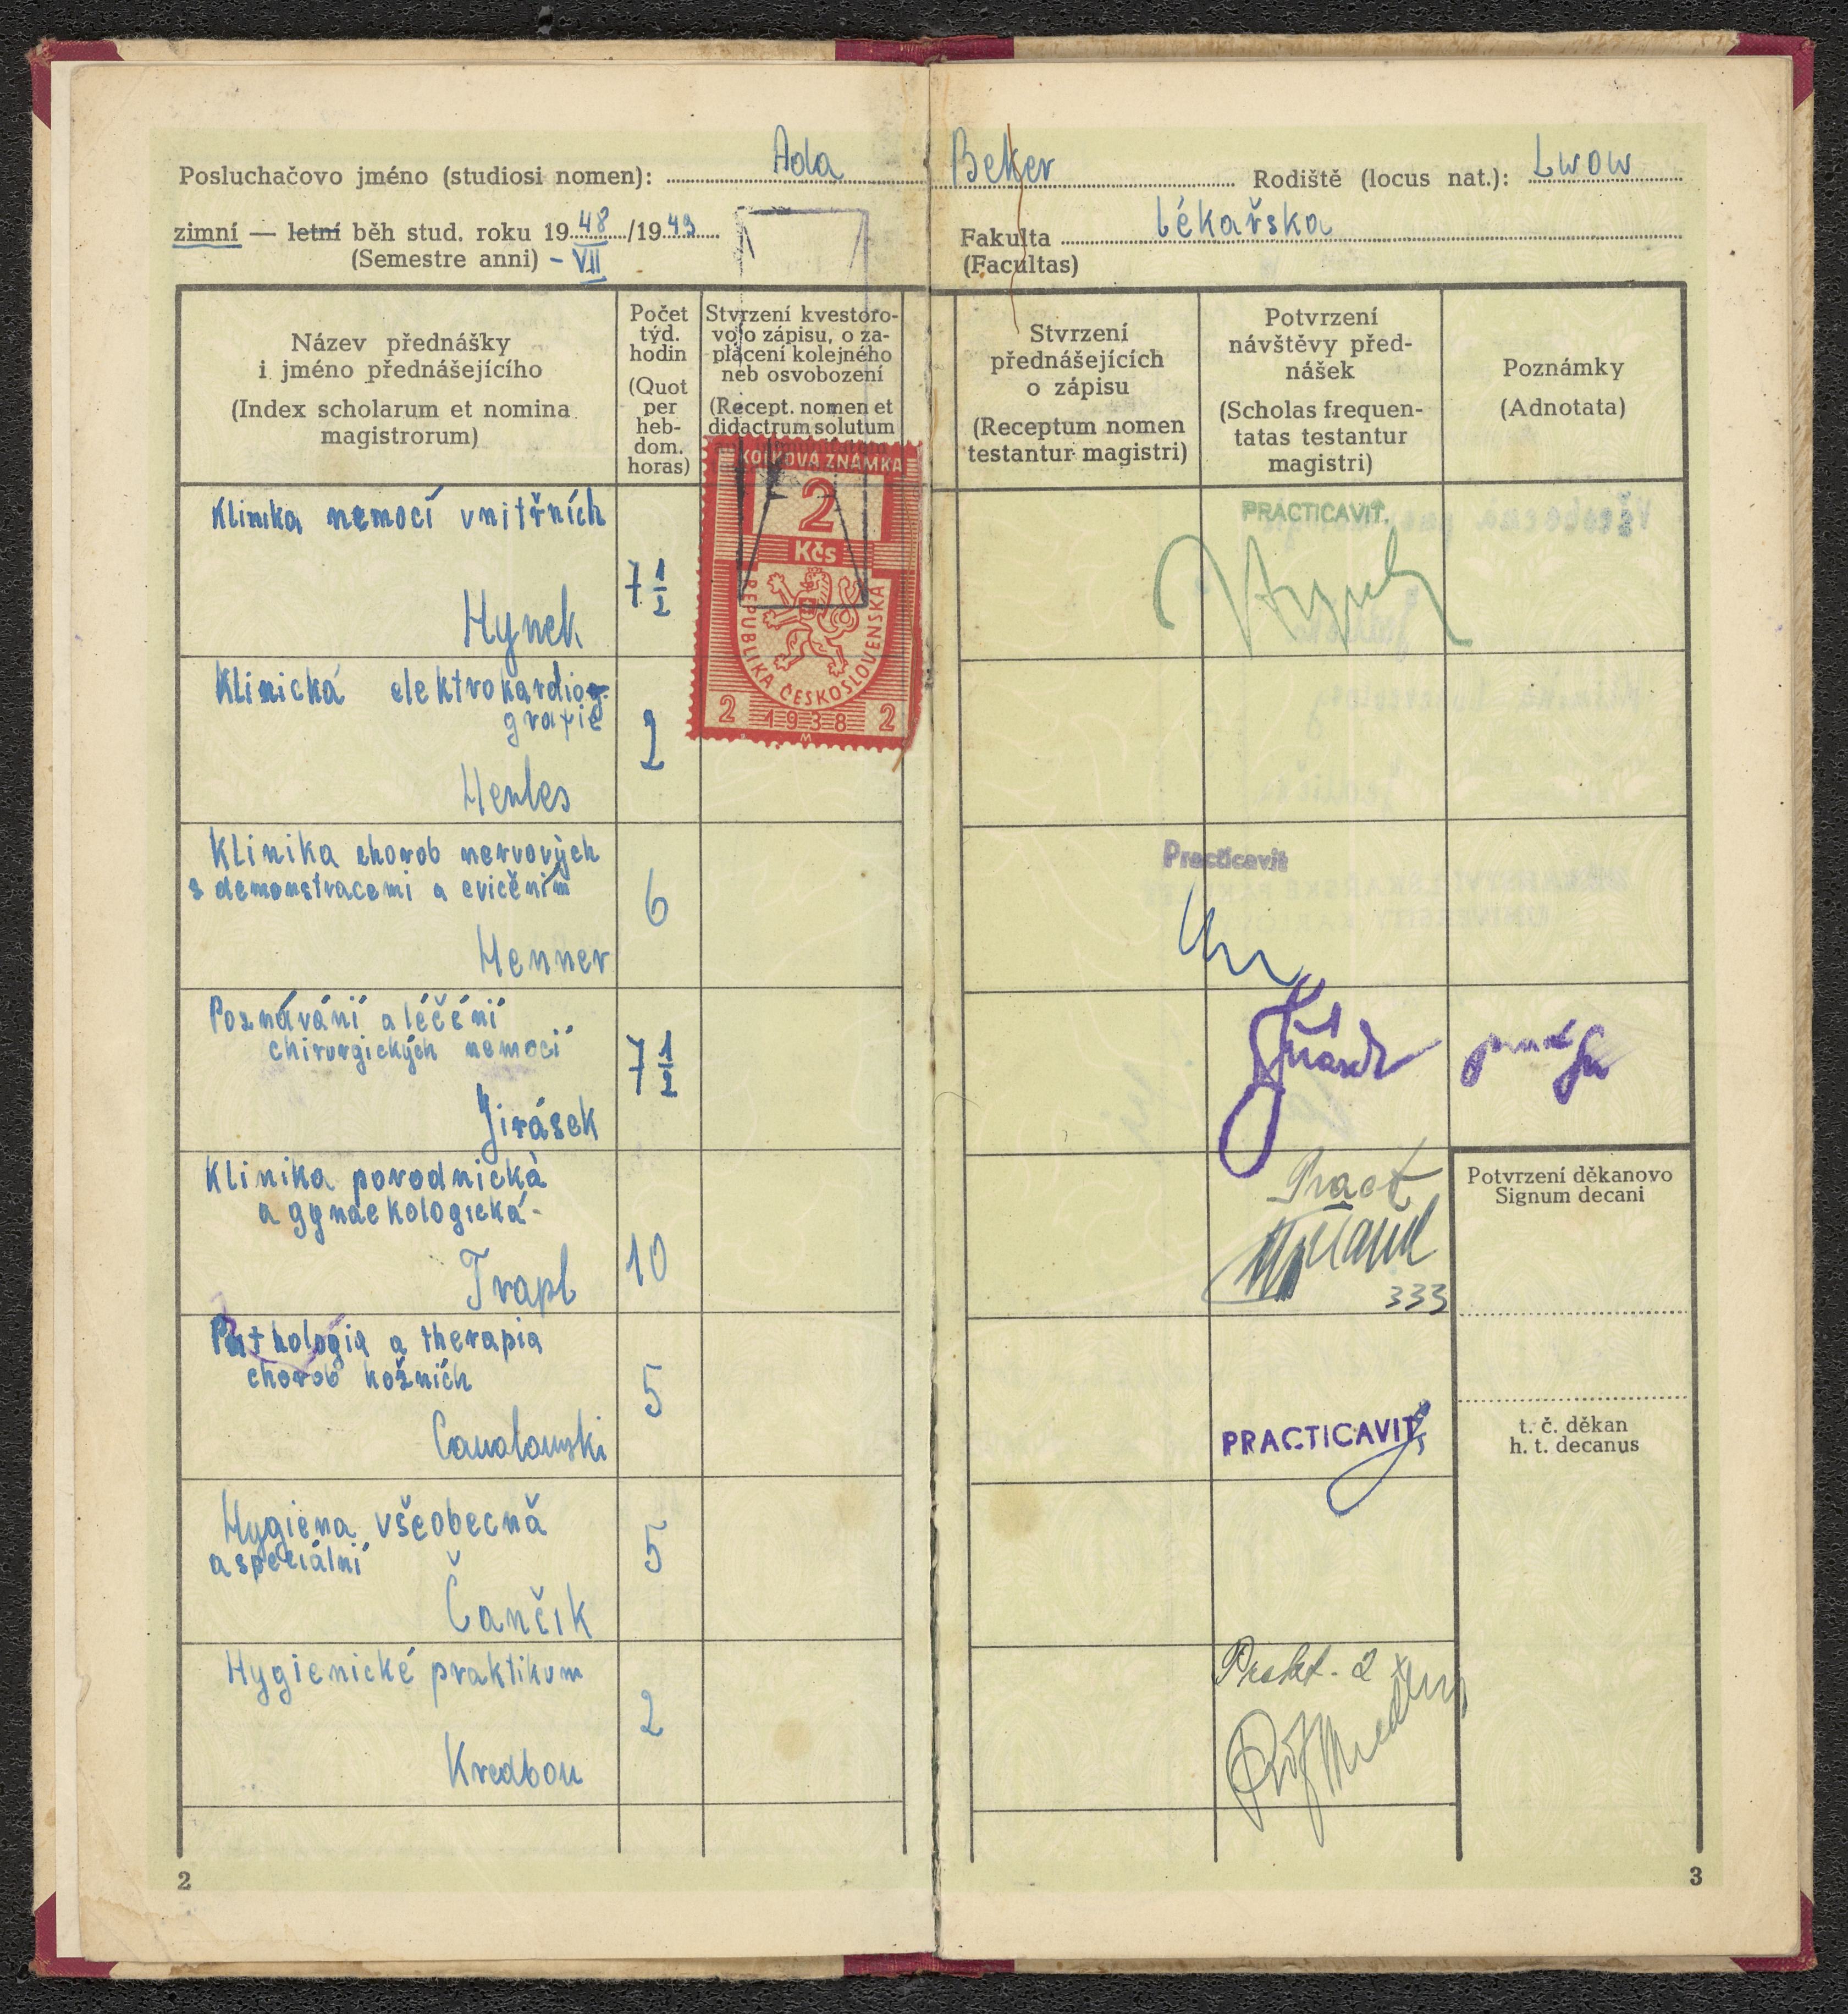 Posluchačovo jméno (studiosi nomen): Ada Beker Rodiště (locus nat.): Lwow
zimní — letní běh stud. roku 1948/1949
(Semestre anni) - VII
Fakulta lékařska
(Facultas)
Název přednášky
i jméno přednášejícího
(Index scholarum et nomina
magistrorum)
Počet
týd.
hodin
(Quot
per
heb-
dom.
horas)
Stvrzení kvestoro-
vo o zápisu, o za-
placení kolejného
neb osvobození
(Recept. nomen et
didactrum solutum
Stvrzení
přednášejících
o zápisu
(Receptum nomen
testantur magistri)
Potvrzení
návštěvy před-
nášek
(Scholas frequen-
tatas testantur
magistri)
Poznámky
(Adnotata)
KOLKOVÁ ZNÁMKA
2
Kčs
REPUBLIKA ČESKOSLOVENSKÁ
2 1938 2
M
Klinika nemocí vnitřních
Hynek
7 1/2
PRACTICAVIT.
Klinická elektrokardiog-
grafie
Herles
2
Klinika chorob nervových
s demonstracemi a cvičením
Henner
6
Practicavit
Poznávání a léčéní
chirurgických nemocí
Jirásek
7 1/2
Klinika porodnická
a gynaekologická-
Trapl
10
Pract
333
Potvrzení děkanovo
Signum decani
Pathologia a therapia
chorob kožních
5
PRACTICAVIT,
t. č. děkan
h. t. decanus
Hygiena všeobecná
a speciální
Čančík
5
Hygienické praktikum
Kredbou
2
Prakt. 2
2
3